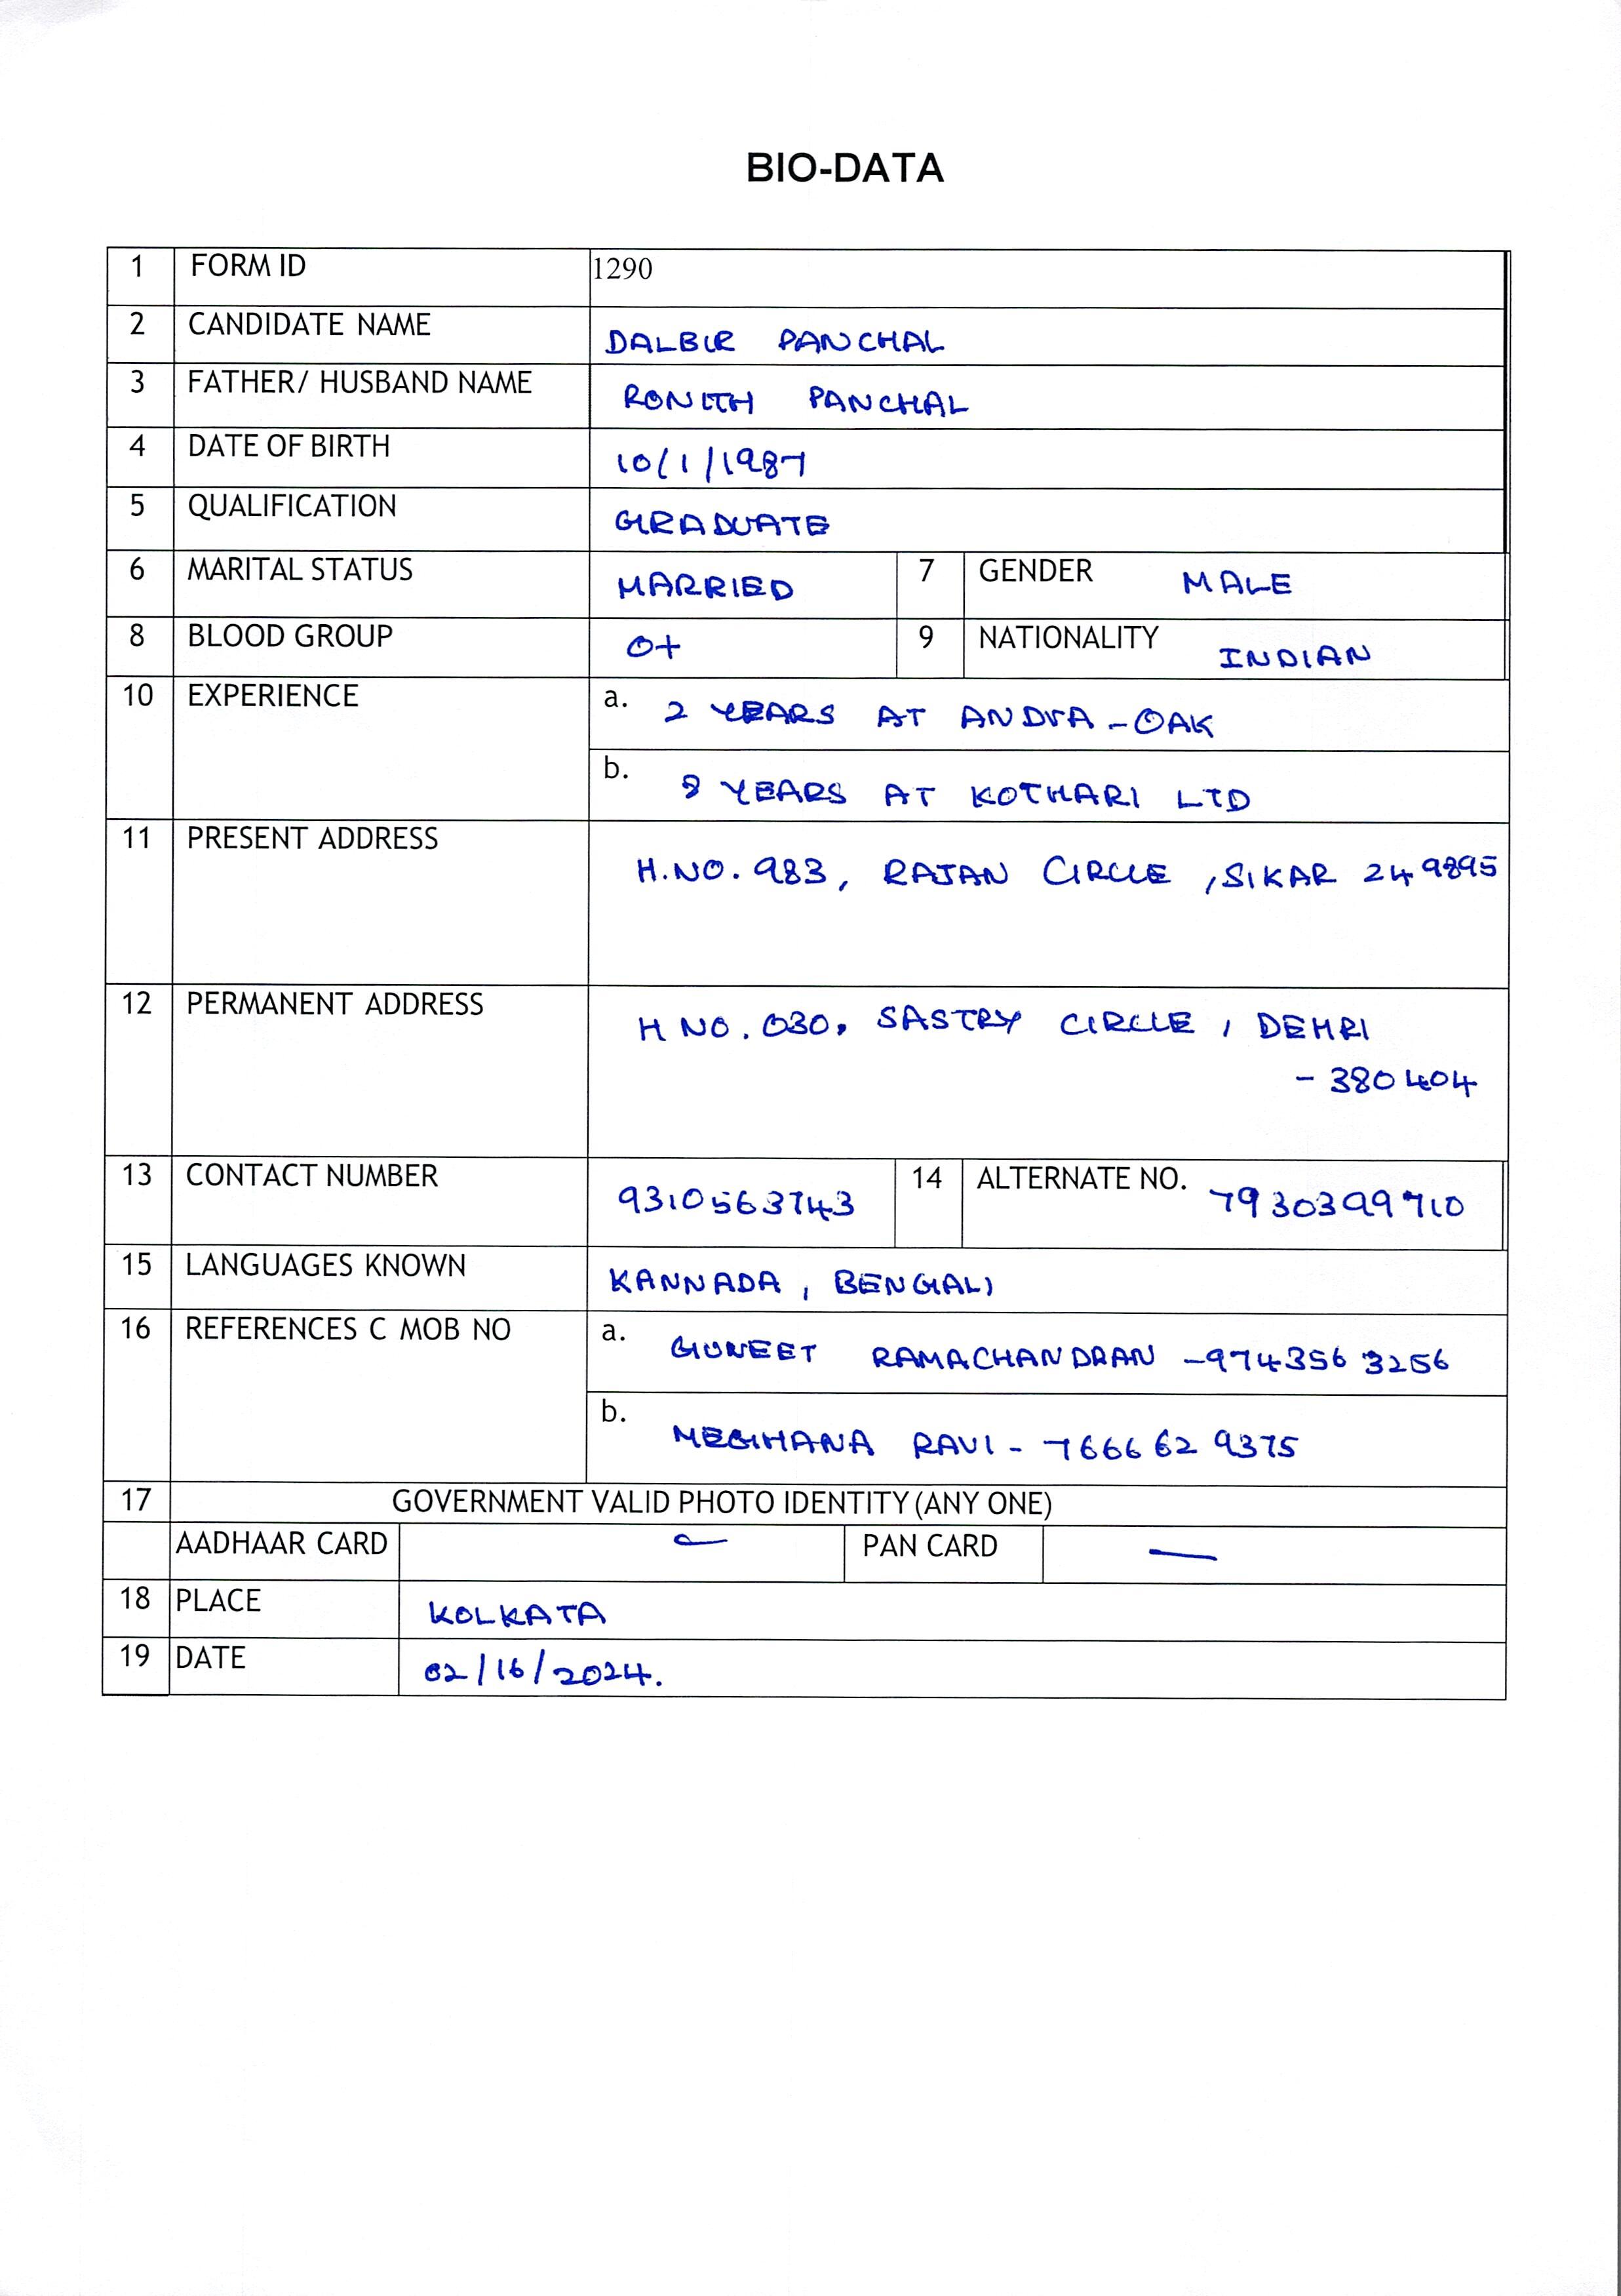 BIO-DATA
1 FORM ID 1290
2 CANDIDATE NAME DALBIR PANCHAL
3 FATHER/ HUSBAND NAME RONITH PANCHAL
4 DATE OF BIRTH 10/1/1987
5 QUALIFICATION GRADUATE
6 MARITAL STATUS MARRIED 7 GENDER MALE
8 BLOOD GROUP O+ 9 NATIONALITY INDIAN
10 EXPERIENCE a. 2 YEARS AT - OAK
b. 8 YEARS AT KOTHARI LTD
11 PRESENT ADDRESS H.NO. 983, RAJAN CIRCLE , SIKAR 249895
12 PERMANENT ADDRESS H NO. 030, SASTRY CIRCLE , DEHRI
- 380404
13 CONTACT NUMBER 9310563743 14 ALTERNATE NO. 7930399710
15 LANGUAGES KNOWN KANNADA , BENGALI
16 REFERENCES C MOB NO a. RAMACHANDRAN - 9743563256
b. MEGHANA RAVI - 7666629375
17 GOVERNMENT VALID PHOTO IDENTITY (ANY ONE)
AADHAAR CARD — PAN CARD —
18 PLACE KOLKATA
19 DATE 02/16/2024.